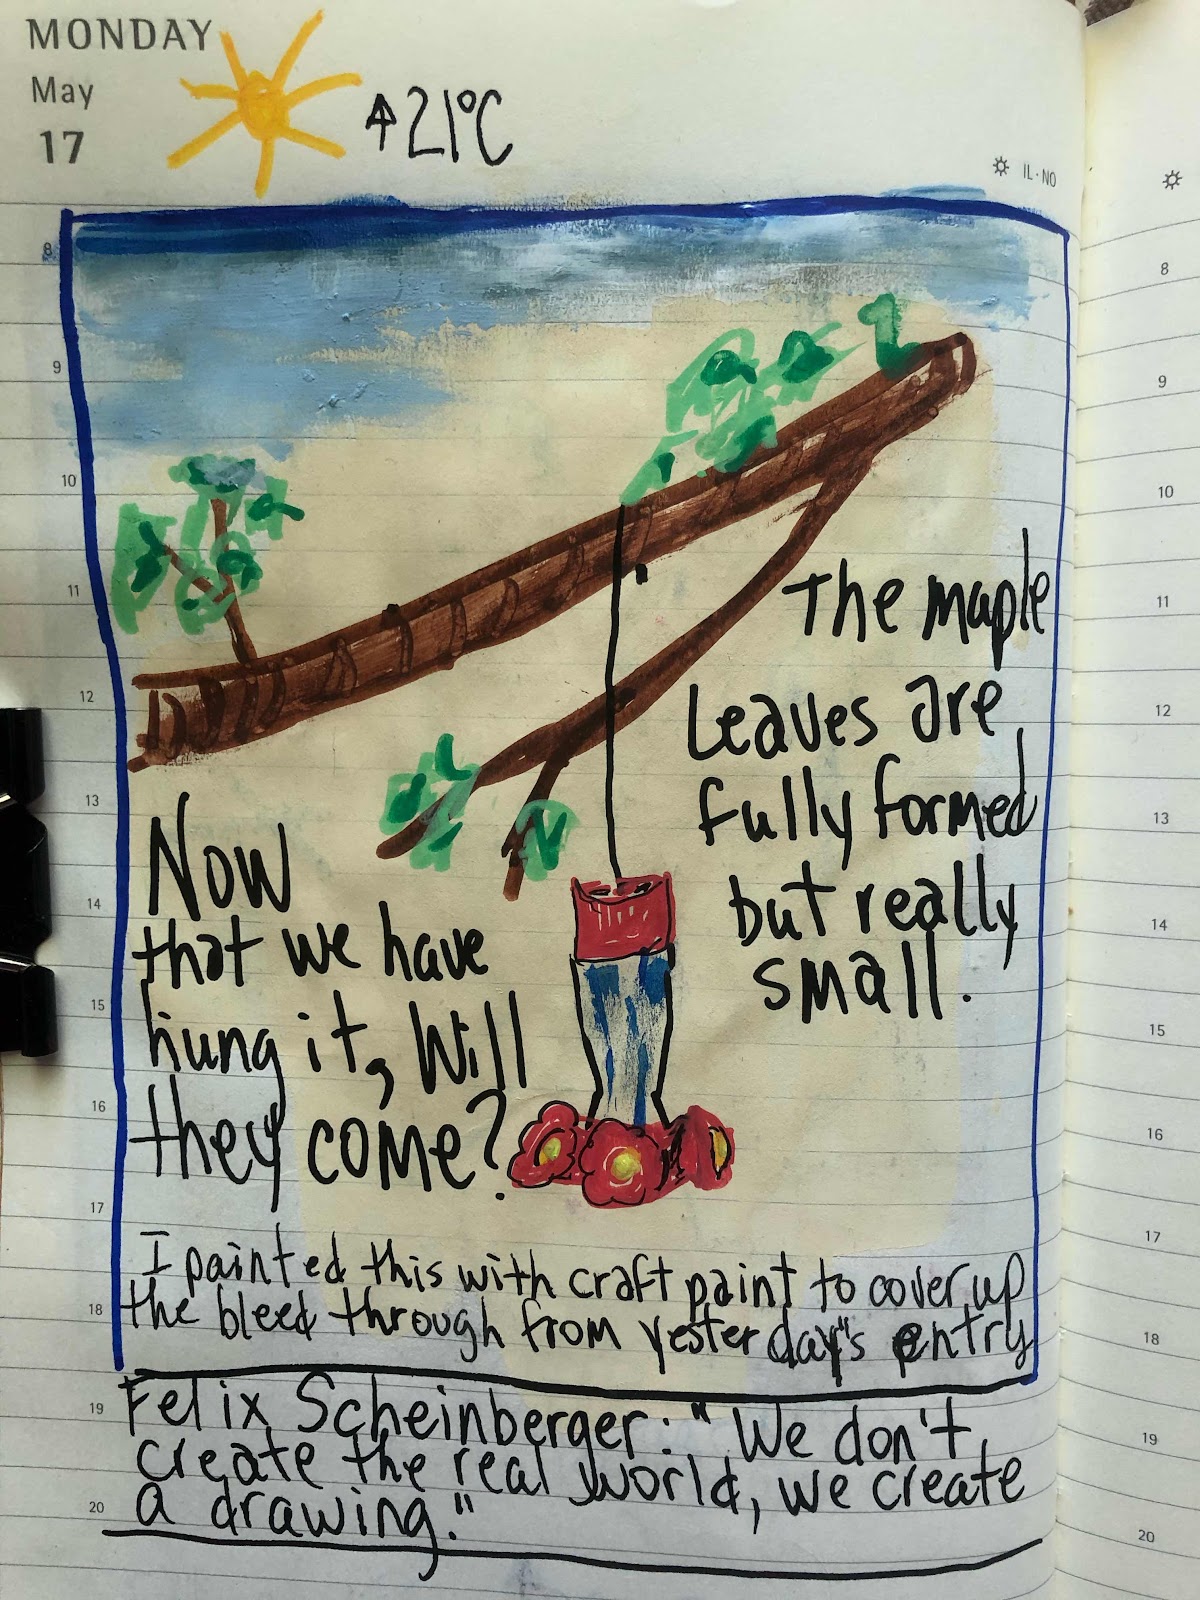 MONDAY
May
17
↑21°C
IL·NO
8
9
10
11
12
13
14
15
16
17
18
19
20
The maple
Leaves are
fully formed
but really
small.
Now
that we have
hung it, Will
they come?
I painted this with craft paint to cover up
the bleed through from yesterday's entry
Felix Scheinberger: "We don't
create the real world, we create
a drawing."
8
9
10
11
12
13
14
15
16
17
18
19
20